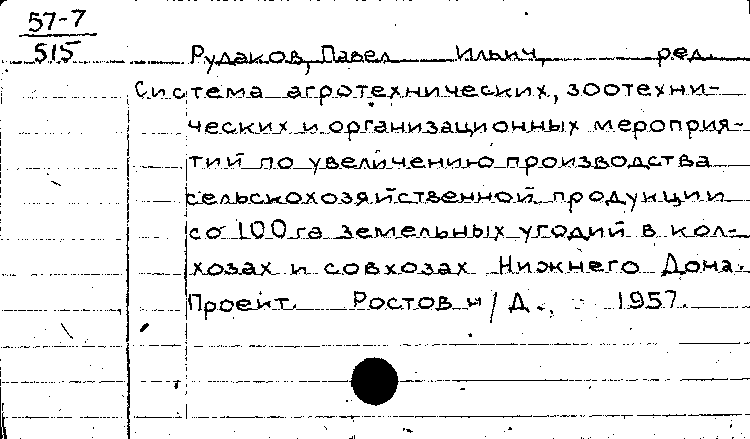 57-7
515
Рудаков, Павел Ильич, ред.
Система агротехнических, зоотехни-
ческих и организационных мероприя-
тий по увеличению производства
сельскохозяйственной продукции
со 100 га земельных угодий в кол-
хозах и совхозах Нижнего Дона.
Проект. Ростов н/Д., 1957.